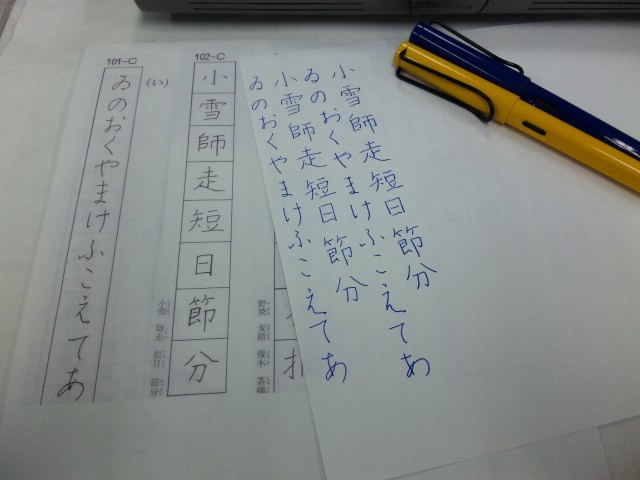 小雪師走短日節分
ゐのおくやまけふこえてあ
小雪師走短日節分
ゐのおくやまけふこえてあ
102-C
小雪師走短日節分
小雪 師走 短日 節分
101-C
(い)
ゐのおくやまけふこえてあ